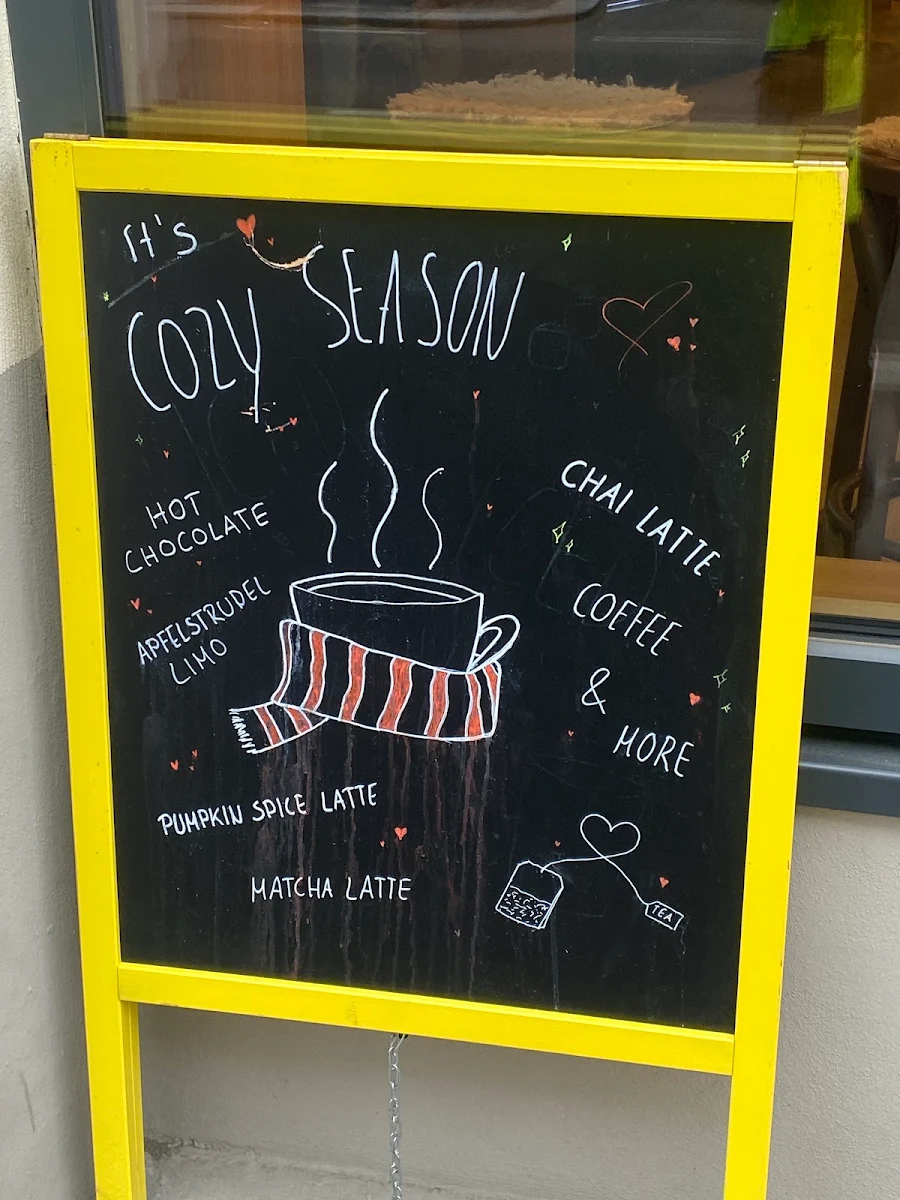 It's
COZY SEASON
HOT
CHOCOLATE
APFELSTRUDEL
LIMO
CHAI LATTE
COFFEE
&
MORE
PUMPKIN SPICE LATTE
MATCHA LATTE
TEA